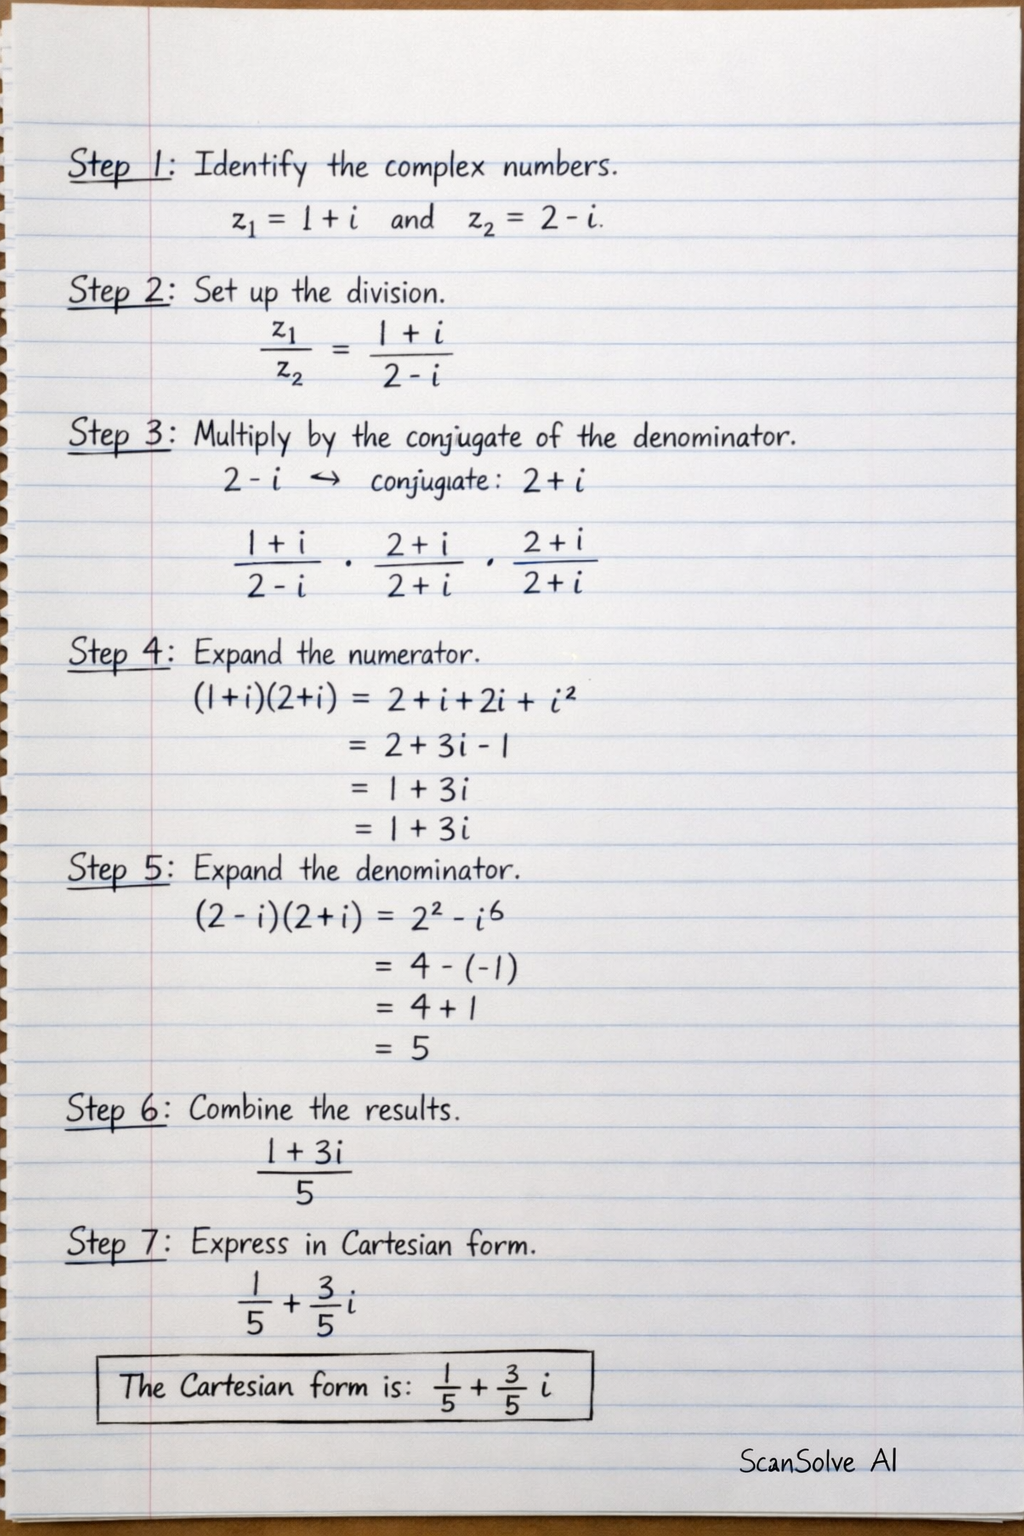 Step 1: Identify the complex numbers.
z₁ = 1 + i and z₂ = 2 - i.
Step 2: Set up the division.
z₁/z₂ = (1 + i)/(2 - i)
Step 3: Multiply by the conjugate of the denominator.
2 - i ↔ conjugate: 2 + i
(1 + i)/(2 - i) · (2 + i)/(2 + i) · (2 + i)/(2 + i)
Step 4: Expand the numerator.
(1+i)(2+i) = 2 + i + 2i + i²
= 2 + 3i - 1
= 1 + 3i
= 1 + 3i
Step 5: Expand the denominator.
(2 - i)(2 + i) = 2² - i⁶
= 4 - (-1)
= 4 + 1
= 5
Step 6: Combine the results.
(1 + 3i)/5
Step 7: Express in Cartesian form.
1/5 + 3/5 i
The Cartesian form is: 1/5 + 3/5 i
ScanSolve AI